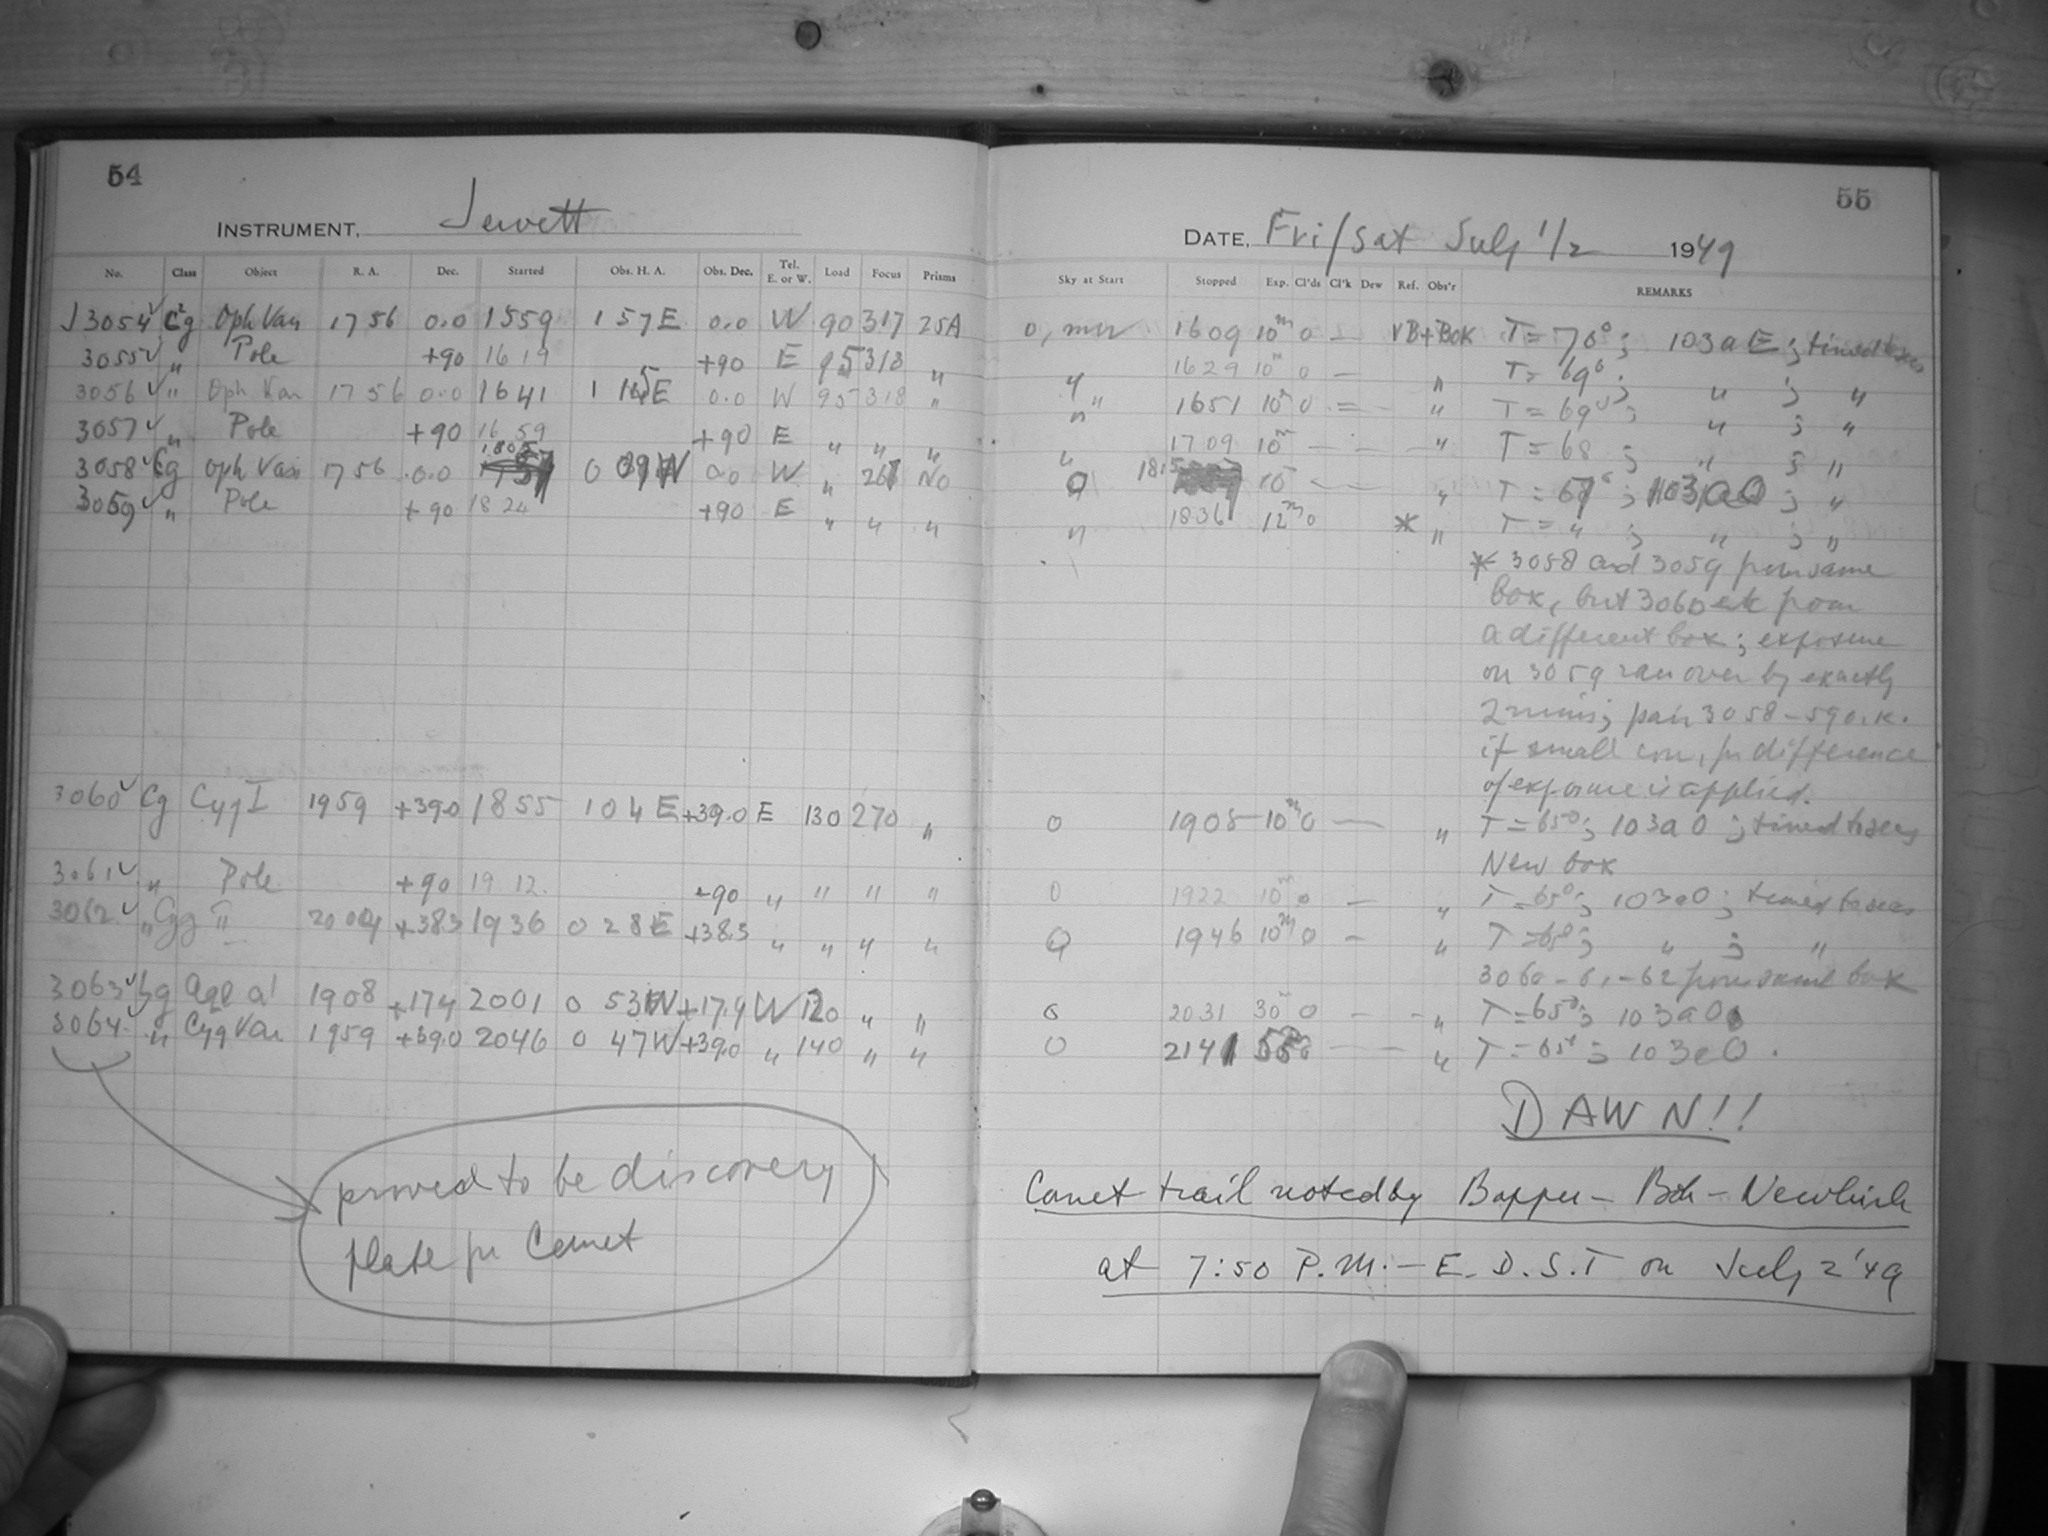 54
INSTRUMENT, Jewett
No. Class Object R. A. Dec. Started Obs. H. A. Obs. Dec. Tel. E. or W. Load Focus Prisms
J 3054 Cg Oph Var 17 56 0.0 1559 1 57 E 0.0 W 90 317 25A
3055 " Pole +90 1619 +90 E 95 318 "
3056 " Oph Var 17 56 0.0 1641 1 15 E 0.0 W 95 318 "
3057 " Pole +90 1659 +90 E " " "
3058 Cg Oph Var 17 56 0.0 1805 0 09 W 0.0 W " 267 No
3059 " Pole +90 1824 +90 E " " "
3060 Cg Cyg I 1959 +39.0 1855 1 04 E +39.0 E 130 270 "
3061 " Pole +90 1912 +90 " " " "
3062 " Cyg II 2004 +38.3 1936 0 28 E +38.3 " " " "
3063 Cg Aql 1908 +17.4 2001 0 53 W +17.4 W 120 " "
3064 " Cyg Var 1959 +39.0 2046 0 47 W +39.0 " 140 " "
proved to be discovery
plate for Comet
55
DATE, Fri/Sat July 1/2 1949
Sky at Start Stopped Exp. Cl'ds Cl'k Dew Ref. Obs'r REMARKS
0, 1609 10m 0 — VB+Bok T = 70°; 103a E; timed
" 1629 10m 0 — " T = 69°; " ; "
" 1651 10m 0 = " T = 69°; " ; "
" 1709 10m — — " T = 68 ; " ; "
0 1815 10m — — " T = 67°; 103aO ; "
" 1836 12m 0 * " T = " ; " ; "
* 3058 and 3059 from same
box, but 3060 etc from
a different box; exposure
on 3059 ran over by exactly
2 mins; pair 3058-59 o.k.
if small corr. for difference
of exposure is applied.
0 1905 10m 0 — " T = 65°; 103aO ; timed to secs
New box
0 1922 10m 0 — " T = 65°; 103aO ; timed to secs
0 1946 10m 0 — " T = 65°; " ; "
3060-61-62 from same box
0 2031 30m 0 — - " T = 65°; 103aO
0 2141 55m 0 — — " T = 65°; 103aO .
DAWN!!
Comet trail noted by Bappu - Bok - Newkirk
at 7:50 P.M. - E.D.S.T on July 2 '49